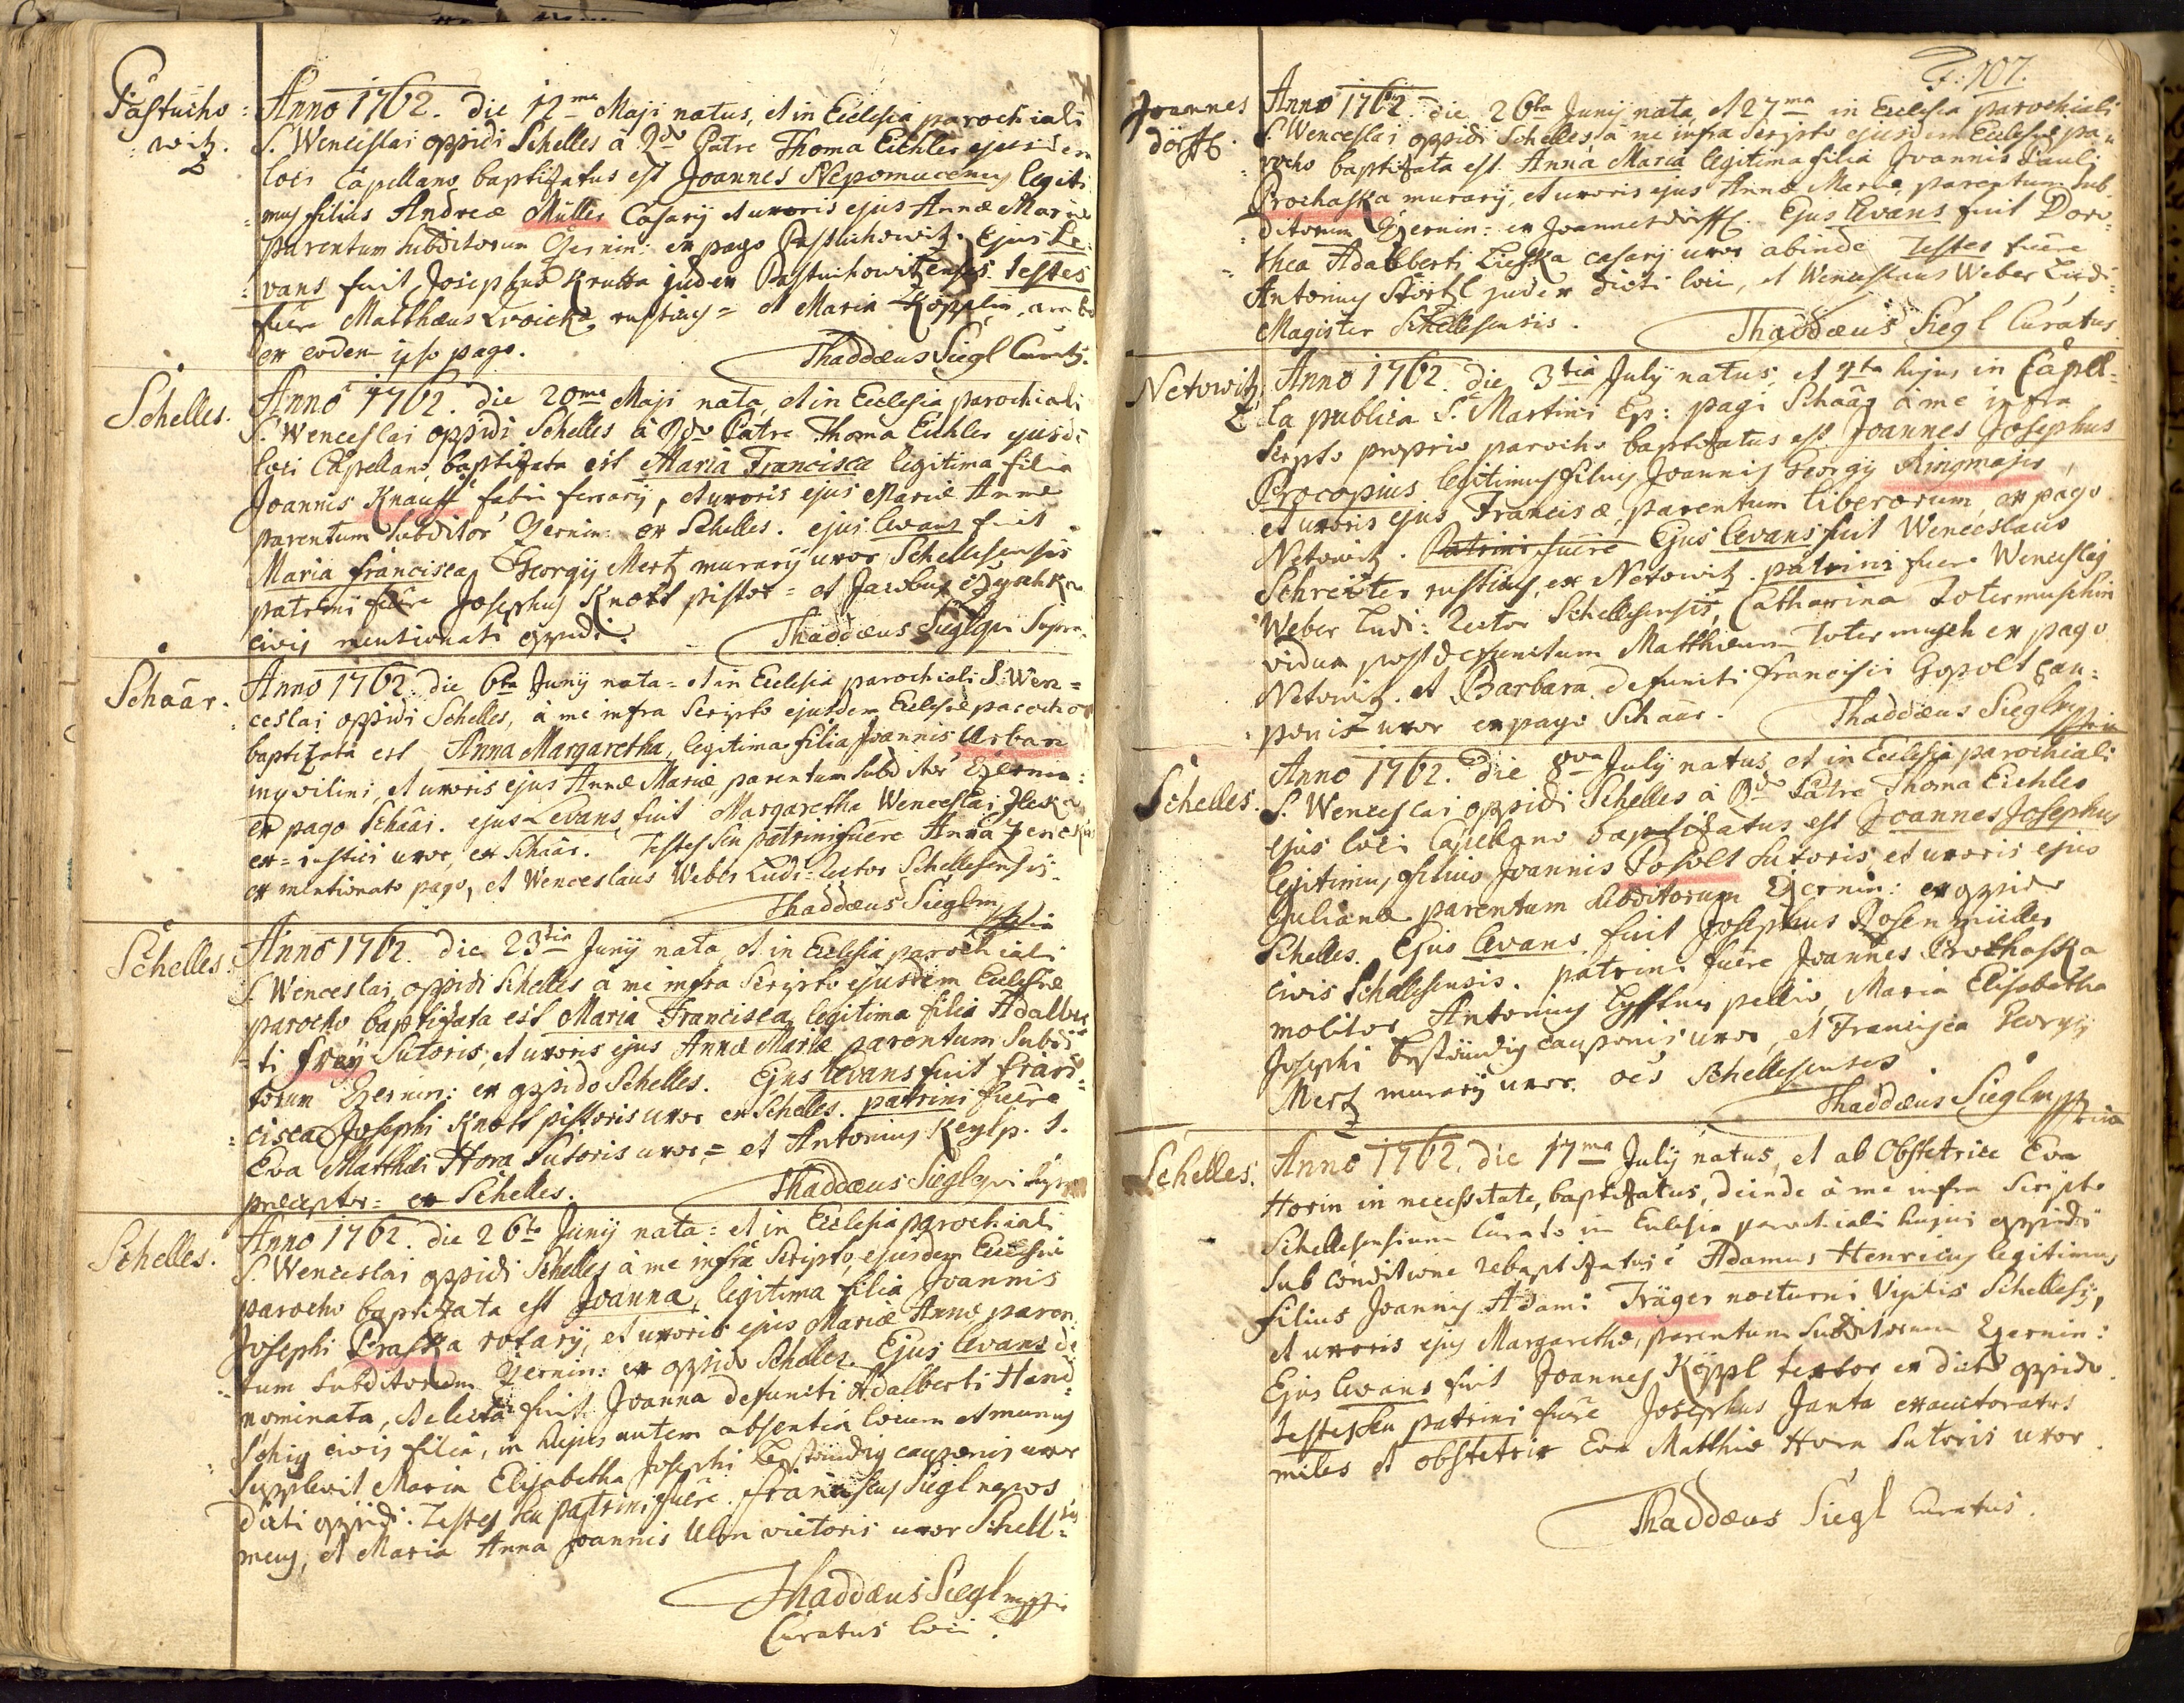 Pastucho
witz.
Anno 1762. die 12ma Maji natus, et in Ecclesia parochiali
S. Wenceslai oppidi Schelles à Rdo Patre Thoma Eichler ejusdem
loci Capellano baptizatus est Joannes Nepomucenus legiti
mus filius Andreæ Müller Casarij et uxoris ejus Annæ Mariæ
parentum subditorum Czernin: ex pago Pastuchowitz. Ejus Le
vans fuit Josephus Krutta judex Pastuchowitzensis. testes
fuere Matthæus rusticus = et Maria Köpplin, ambo
ex eodem ipso pago. Thaddæus Siegl Curat9.
Schelles.
Anno 1762. die 20ma Maji nata, et in Ecclesia parochiali
S. Wenceslai oppidi Schelles à Rdo Patre Thoma Eichler ejusd
loci Capellano, baptizata est Maria Francisca legitima filia
Joannis Knauff fabri ferrarij, et uxoris ejus Mariæ Annæ
parentum subditor Czernin: ex Schelles. ejus levans fuit
Maria francisca, Georgij Mertz murarij uxor Schellesensis
patrini fuere Josephus Knott pistor = et Jacobus
civis mentionati oppidi. Thaddæus Siegl qui supra
Schaar.
Anno 1762. die 6ta Junij nata = et in Ecclesia parochiali S. Wen =
ceslai oppidi Schelles, à me infra scripto ejusdem Ecclesiæ parocho
baptizata est Anna Margaretha, legitima filia Joannis Urban
inquilini, et uxoris ejus Annæ Mariæ, parentum subditor Czernin:
ex pago Schaar. ejus Levans fuit Margaretha Wenceslai
ex = rustici uxor, ex Schaar. Testes seu patrini fuere Anna
ex mentionato pago, et Wenceslaus Weber Ludi = Rector Schellesensis.
Thaddæus Siegl mppria
Schelles.
Anno 1762. die 23tia Junij nata, et in Ecclesia parochiali
S. Wenceslai oppidi Schelles à me infra scripto ejusdem Ecclesiæ
parocho baptizata est Maria Francisca, legitima filia Adalber
= ti Frey Sutoris, et uxoris ejus Annæ Mariæ parentum subdi
torum Czernin: ex oppido Schelles. Ejus levans fuit Fran =
cisca Josephi Knott pistoris uxor ex Schelles. patrini fuere
Eva Matthæi Hora Sutoris uxor = et Antonius Keylp. S.
præceptor = ex Schelles. Thaddæus Siegl qui supra
Schelles.
Anno 1762. die 26ta Junij nata = et in Ecclesia parochiali
S. Wenceslai oppidi Schelles à me infra scripto, ejusdem Ecclesiæ
parocho baptizata est Joanna, legitima filia Joannis
Josephi Praska rotarij, et uxoris ejus Mariæ Annæ paren
tum subditorum Czernin: ex oppido Schelles. Ejus levans de
nominata, et electa fuit Joanna defuncti Adalberti Hand
Schig civis filia, in hujus autem absentia locum et munus
supplevit Maria Elisabetha Josephi Beständig cauponis uxor
dicti oppidi. Testes seu patrini fuere Franciscus Siegl nepos
meus, et Maria Anna Joannis Ulm victoris uxor Schell =
Thaddæus Siegl mppria
Curatus loci.
F: 107.
Joannes
dörffl.
Anno 1762. die 26ta Junij nata, et 27ma in Ecclesia parochiali
S. Wenceslai oppidi Schelles à me infra scripto ejusdem Ecclesiæ pa =
rocho baptizata est Anna Maria legitima filia Joannis Pauli
Prochaska murarij, et uxoris ejus Annæ Mariæ, parentum sub
ditorum Czernin: ex Joannesdörffl. Ejus levans fuit Doro =
thea Adalberti Lieska casarij uxor abinde Testes fuere
Antonius Störtzl judex dicti loci, et Wenceslaus Weber Ludi =
Magister Schellesensis. Thaddæus Siegl Curatus
Netowitz
Anno 1762. die 3tia July natus, et 4ta hujus in Capel =
la publica S. Martini Ep: pagi Schaar à me infra
scripto proprio parocho baptizatus est Joannes Josephus
Procopius legitimus filius Joannis Georgij Ringmajer,
et uxoris ejus Franciscæ, parentum liberorum, ex pago
Netowitz. Patrini fuere Ejus levans fuit Wenceslaus
Schreitter rusticus, ex Netowitz. patrini fuere Wenceslaus
Weber Ludi = Rector Schellesensis, Catharina Totermuschin
vidua post defunctum Matthæum Totermusch ex pago
Netowitz. et Barbara defuncti Francisci Gopolt cau =
ponis uxor ex pago Schaar. Thaddæus Siegl mppria
Schelles.
Anno 1762. die 8va July natus, et in Ecclesia parochiali
S. Wenceslai oppidi Schelles à Rdo Patre Thoma Eichler
ejus loci Capellano baptizatus est Joannes Josephus
legitimus filius Joannis Posolt sutoris, et uxoris ejus
Julianæ parentum subditorum Czernin: ex oppido
Schelles. Ejus levans fuit Josephus Rosenmüller
civis Schellesensis. patrini fuere Joannes Prochaska
molitor Antonius pellio, Maria Elisabetha
Josephi Beständig cauponis uxor, et Francisca Georgij
Mertz murarij uxor. oes Schellesenses
Thaddæus Siegl mppria
Schelles.
Anno 1762. die 17ma July natus, et ab Obstetrice Eva
Horin in necessitate baptizatus, deinde à me infra scripto
Schellesensium Curato in Ecclesia parochiali hujus oppidi
sub conditione rebaptizatus e Adamus Henricus legitimus
filius Joannis Adami Träger nocturni vigilis Schelless,
et uxoris ejus Margarethæ, parentum subditorum Czernin:
Ejus levans fuit Joannes Köppl textor ex dicto oppido.
testes seu patrini fuere Josephus Janta exauctoratus
miles et obstetrix Eva Matthiæ Hora sutoris uxor.
Thaddæus Siegl Curatus.